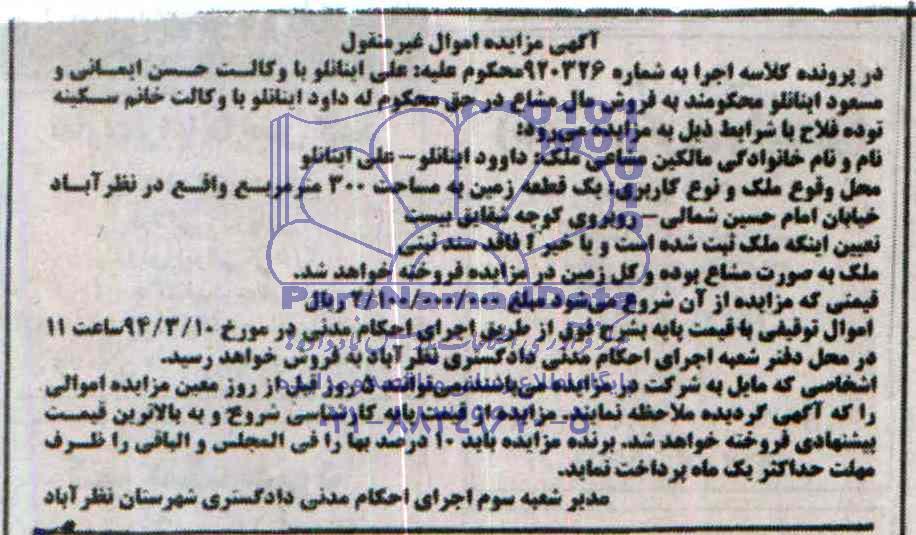 آگهی مزایده اموال غیرمنقول
در پرونده کلاسه اجرا به شماره ۹۲۰۳۲۶محکوم علیه: علی اینانلو با وکالت حسن ایمانی و
مسعود اینانلو محکومند به فروش مال مشاع در حق محکوم له داود اینانلو با وکالت خانم سکینه
توده فلاح با شرایط ذیل به مزایده می‌رود:
نام و نام خانوادگی مالکین مشاعی ملک: داوود اینانلو – علی اینانلو
محل وقوع ملک و نوع کاربری: یک قطعه زمین به مساحت ۳۰۰ متر مربع واقع در نظرآباد
خیابان امام حسین شمالی – روبروی کوچه شقایق بیست
تعیین اینکه ملک ثبت شده است و یا خیر؟ فاقد سند ثبتی
ملک به صورت مشاع بوده و کل زمین در مزایده فروخته خواهد شد.
قیمتی که مزایده از آن شروع می‌شود مبلغ ۲/۱۰۰/۰۰۰/۰۰۰ ریال
اموال توقیفی با قیمت پایه بشرح فوق از طریق اجرای احکام مدنی در مورخ ۹۴/۳/۱۰ساعت ۱۱
در محل دفتر شعبه اجرای احکام مدنی دادگستری نظرآباد به فروش خواهد رسید.
اشخاصی که مایل به شرکت در مزایده می‌باشند می‌توانند ۵ روز قبل از روز معین مزایده اموالی
را که آگهی گردیده ملاحظه نمایند. مزایده از قیمت پایه کارشناسی شروع و به بالاترین قیمت
پیشنهادی فروخته خواهد شد. برنده مزایده باید ۱۰ درصد بها را فی المجلس و الباقی را ظرف
مهلت حداکثر یک ماه پرداخت نماید.
مدیر شعبه سوم اجرای احکام مدنی دادگستری شهرستان نظرآباد
ParsNamadData
۰۲۱-۸۸۳۴۹۶۷۰-۵